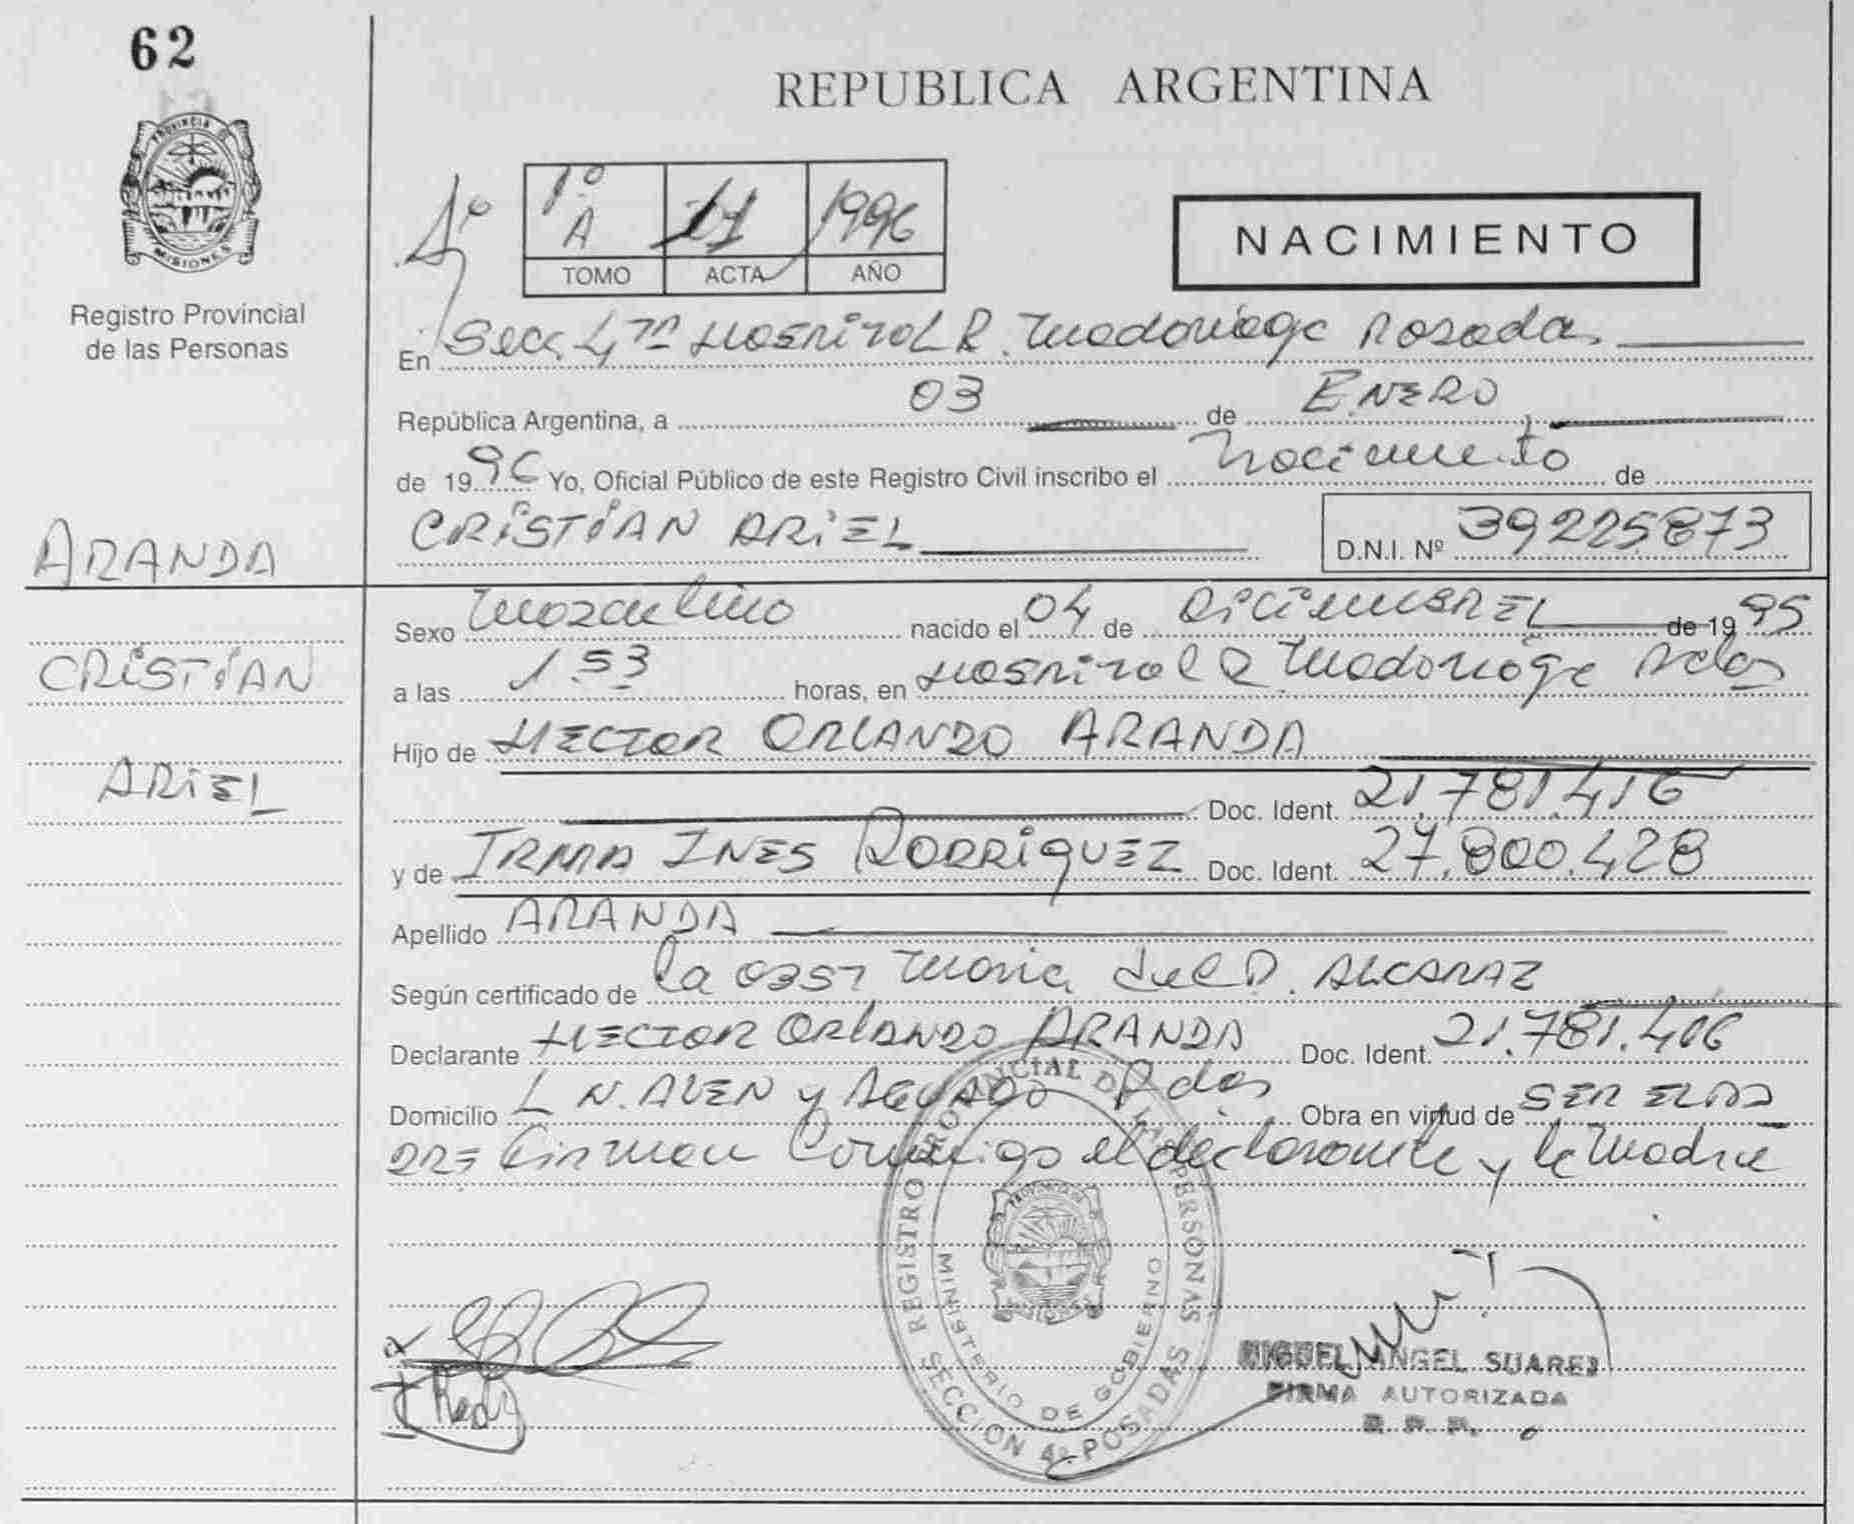 62
PROVINCIA DE
MISIONES
Registro Provincial
de las Personas
REPUBLICA ARGENTINA
1º A 11 1996
TOMO ACTA AÑO
NACIMIENTO
En Secc 4ta Hospital R. Madariaga Posadas
República Argentina, a 03 de ENERO
de 1996 Yo, Oficial Público de este Registro Civil inscribo el Nacimiento de
CRISTIAN ARIEL
D.N.I. Nº 39225873
ARANDA
CRISTIAN
ARIEL
Sexo Masculino nacido el 04 de DICIEMBRE de 1995
a las 1 53 horas, en Hospital R Madariaga Pdas
Hijo de HECTOR ORLANDO ARANDA
Doc. Ident. 21.781.416
y de IRMA INES RODRIGUEZ Doc. Ident. 27.800.428
Apellido ARANDA
Según certificado de la Obst Maria del D. ALCARAZ
Declarante HECTOR ORLANDO ARANDA Doc. Ident. 21.781.416
Domicilio L N. ALEN y Pdas Obra en virtud de SER EL PA
DRE Firman Conmigo el declarante y la Madre
REGISTRO PROVINCIAL DE LAS PERSONAS
SECCION 4ª - POSADAS
MINISTERIO DE GOBIERNO
MIGUEL ANGEL SUAREZ
FIRMA AUTORIZADA
R. P. P.